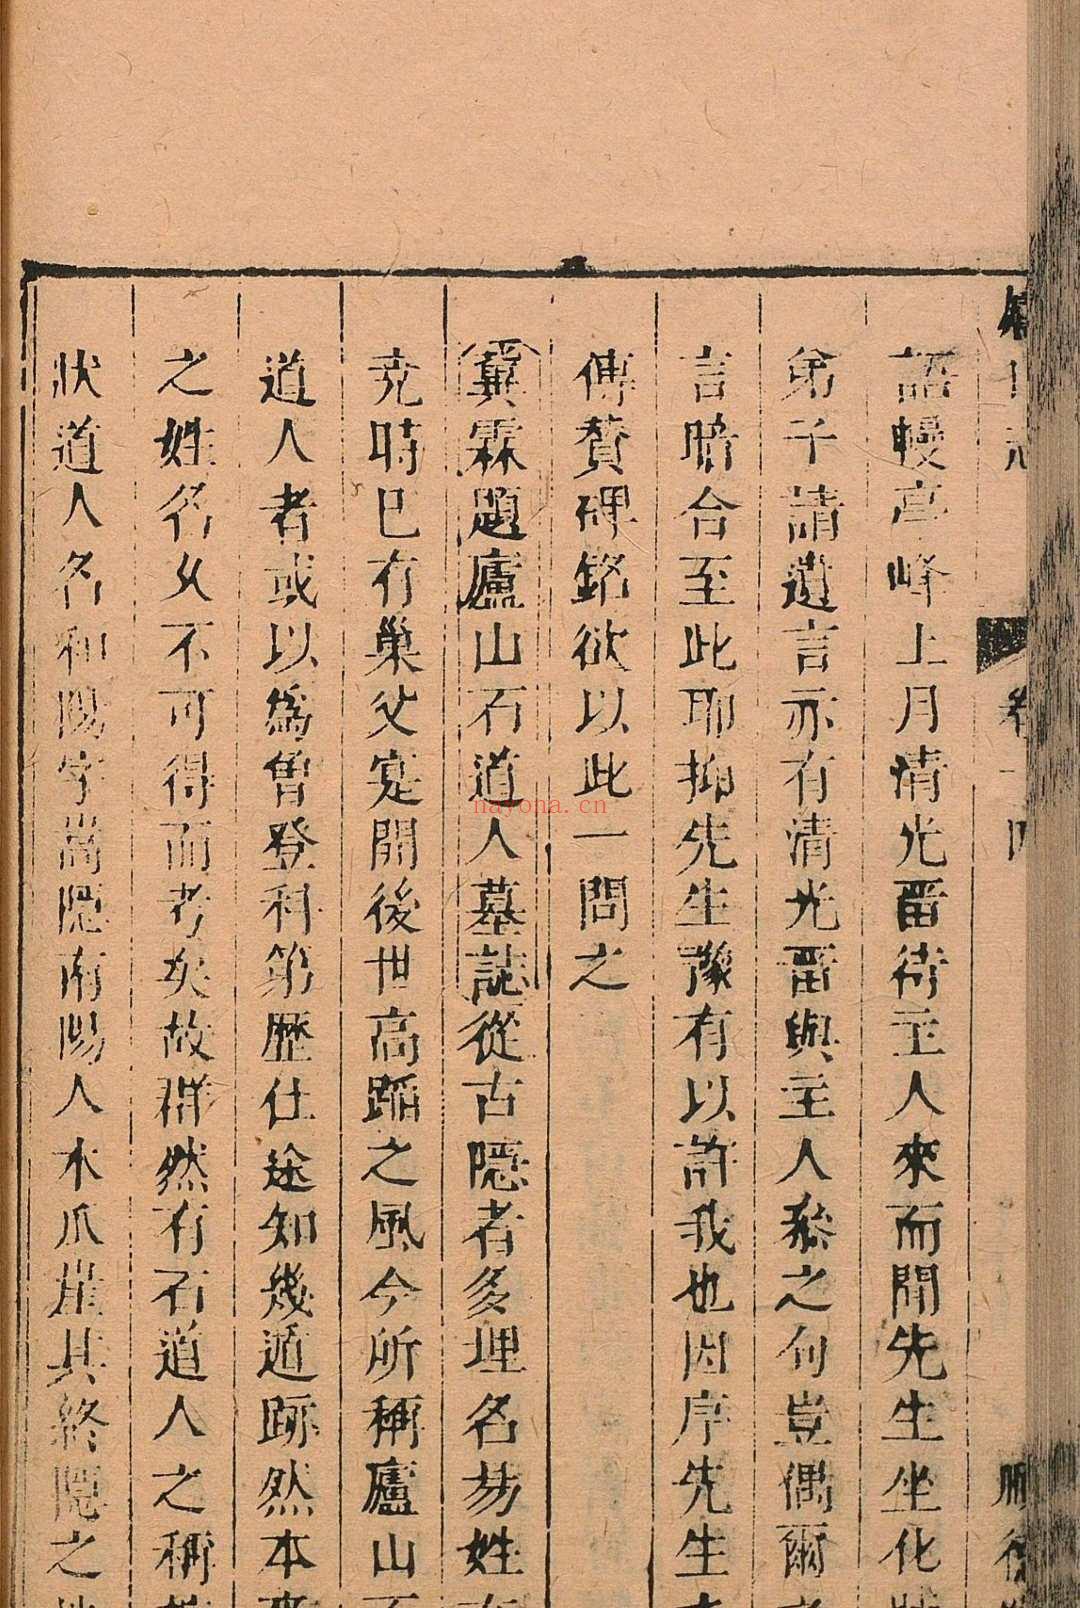 卷十四
語幔亭峰上月清光畱待主人來而聞先生坐化
弟子請遺言亦有清光畱與主人看之句豈偶爾
言暗合至此耶抑先生豫有以許我也因序先生
傳贊碑銘欲以此一問之
冀霖題廬山石道人墓誌從古隱者多埋名易姓
堯時已有巢父寔開後世高蹈之風今所稱廬山
道人者或以為曾登科第歷仕途知幾遁跡然本
之姓名久不可得而考矣故群然有石道人之稱
狀道人名和陽字嵩隱南陽人木瓜崖其終隱之
nayona.cn